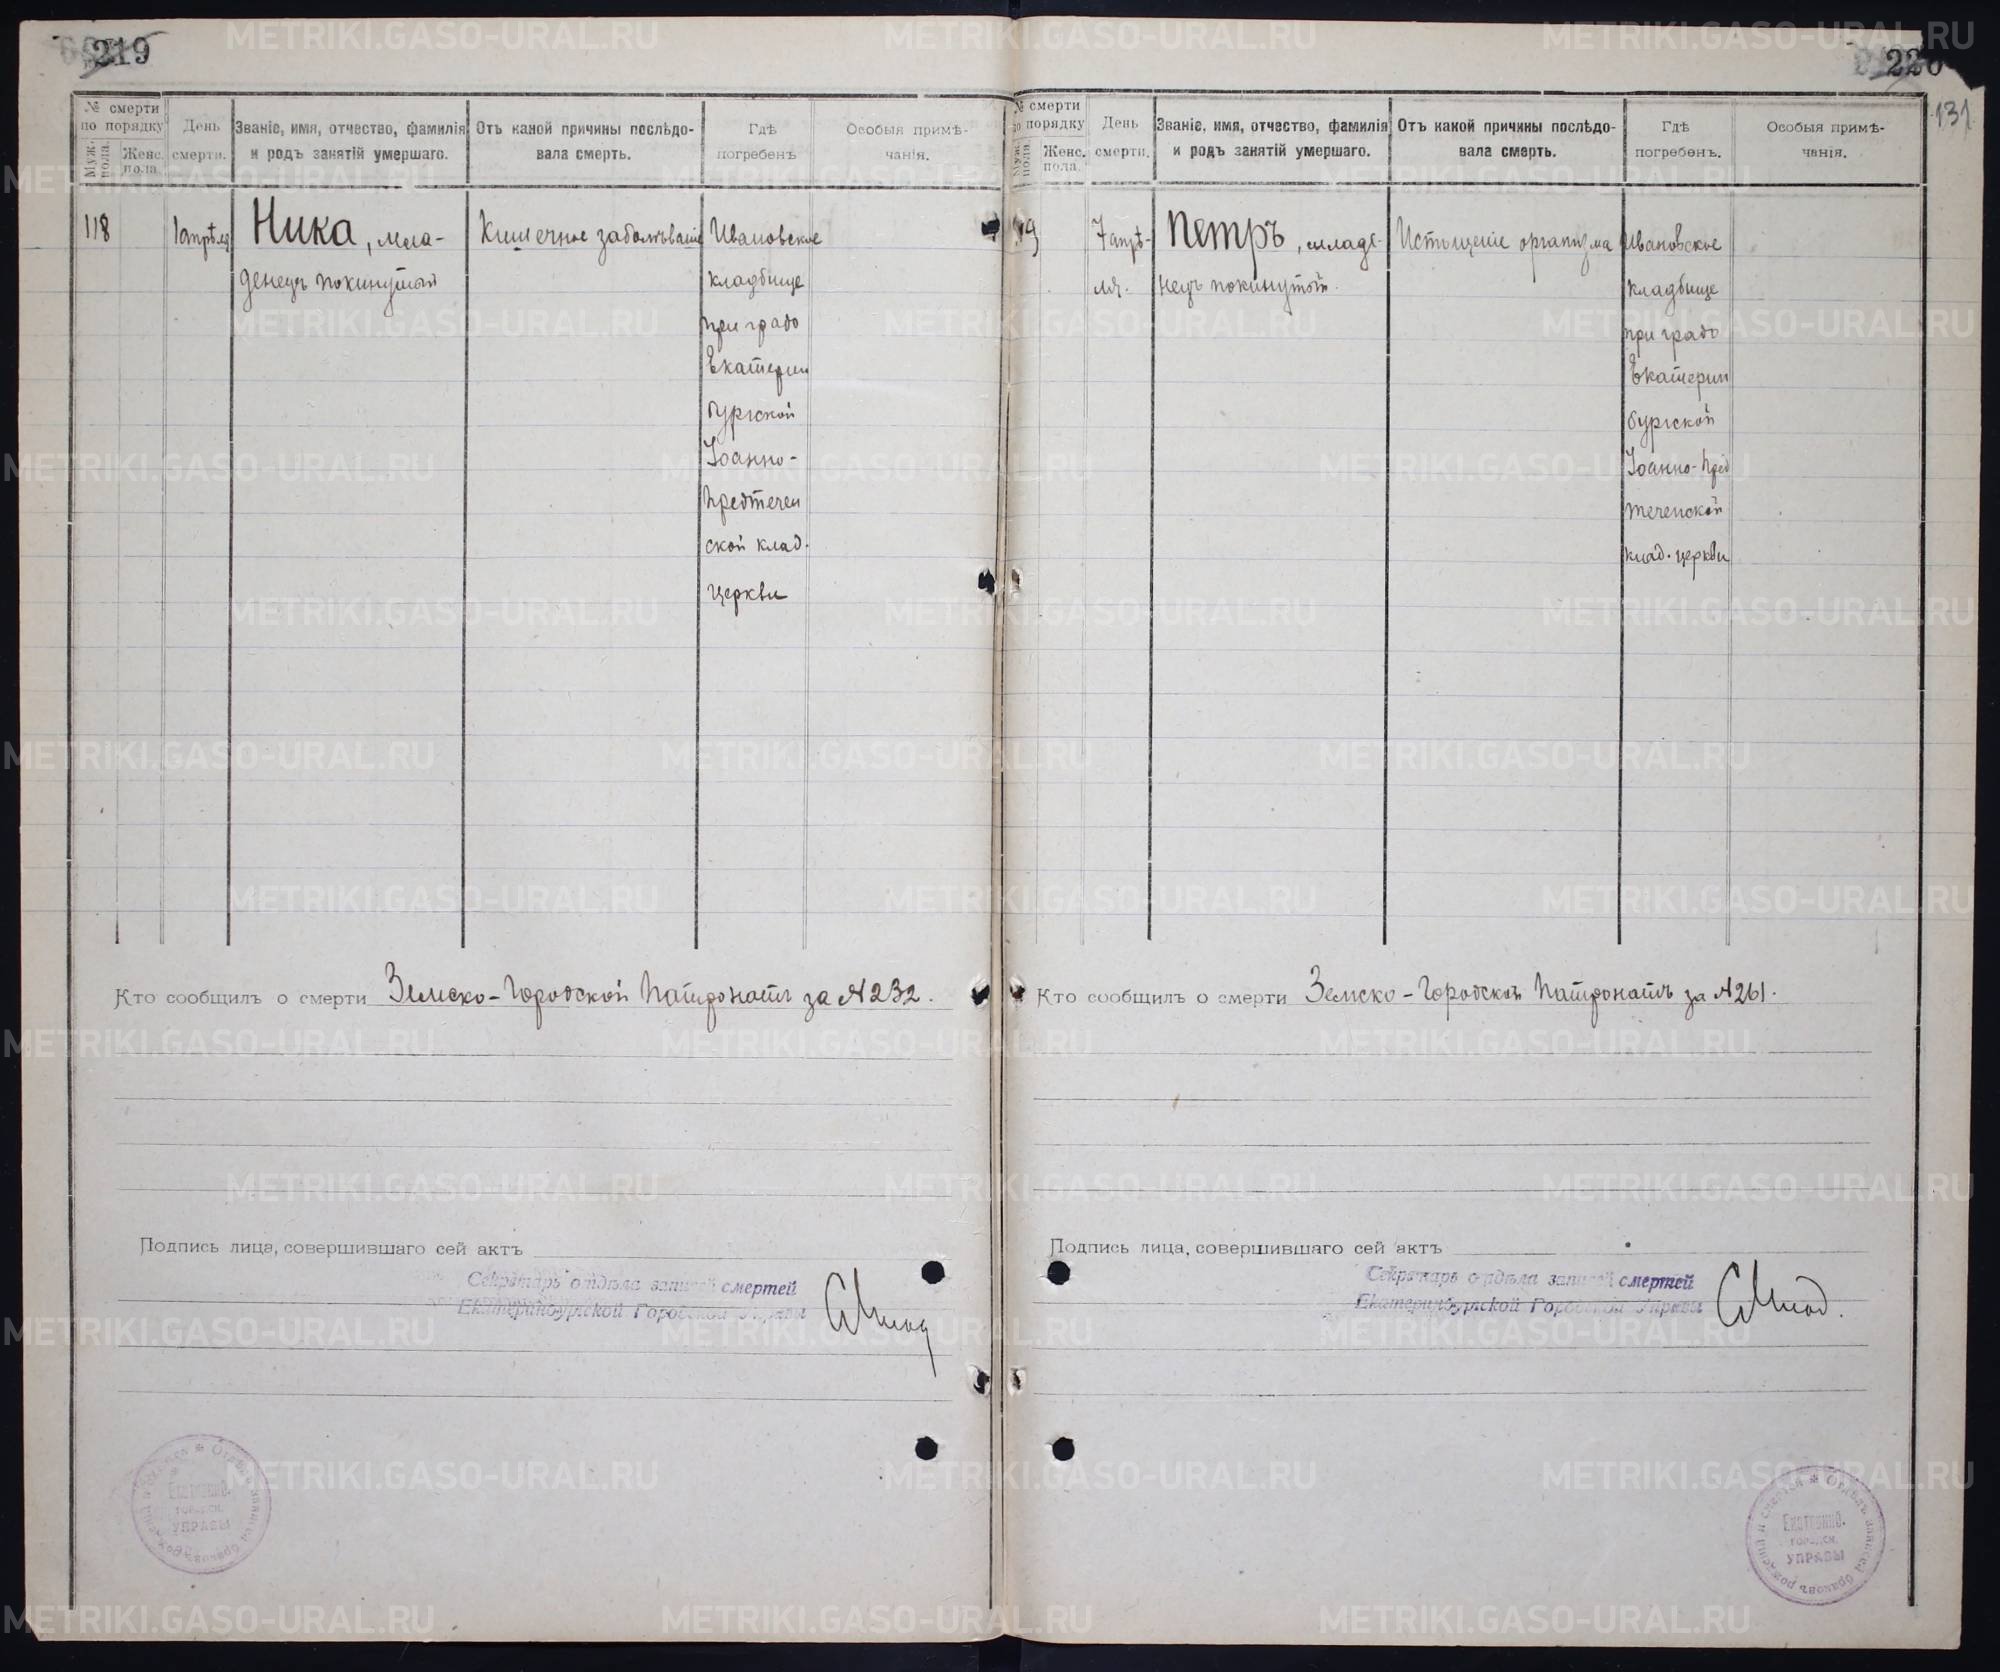 219
№ смерти по порядку
Муж. пола.
Женс. пола
День смерти.
Званіе, имя, отчество, фамилія и родъ занятій умершаго.
Отъ какой причины послѣдовала смерть.
Гдѣ погребенъ
Особыя примѣчанія.
118
1 апрѣля
Ника, мла-
денецъ покинутый
Кишечное заболѣваніе
Ивановское
кладбище
при градо
Екатерин
бургской
Іоанно-
Предтечен
ской клад.
церкви
Кто сообщилъ о смерти Земско-Городской Патронатъ за № 232.
Подпись лица, совершившаго сей актъ
Секретарь отдѣла записей смертей
Екатеринбургской Городской Управы
220
131
№ смерти по порядку
Муж. пола.
Женс. пола.
День смерти.
Званіе, имя, отчество, фамилія и родъ занятій умершаго.
Отъ какой причины послѣдовала смерть.
Гдѣ погребенъ.
Особыя примѣчанія.
7 апрѣ-
ля.
Петръ, младе-
нецъ покинутый.
Истощеніе организма
Ивановское
кладбище
при градо
Екатерин
бургской
Іоанно-Пред
теченской
клад. церкви
Кто сообщилъ о смерти Земско-Городской Патронатъ за № 261.
Подпись лица, совершившаго сей актъ
Секретарь отдѣла записей смертей
Екатеринбургской Городской Управы
Отдѣлъ записей браковъ рожденій и смертей
Екатеринб.
городск.
управы
METRIKI.GASO-URAL.RU